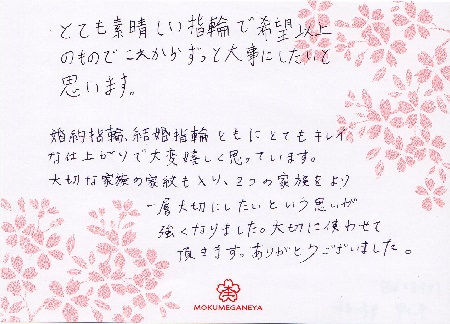 とても素晴しい指輪で希望以上
のもので これからずっと大事にしたいと
思います。
婚約指輪、結婚指輪ともにとてもキレイ
な仕上がりで大変嬉しく思っています。
大切な家族の家紋も入り、2つの家族をより
一層大切にしたいという思いが
強くなりました。大切に使わせて
頂きます。ありがとうございました。
MOKUMEGANEYA